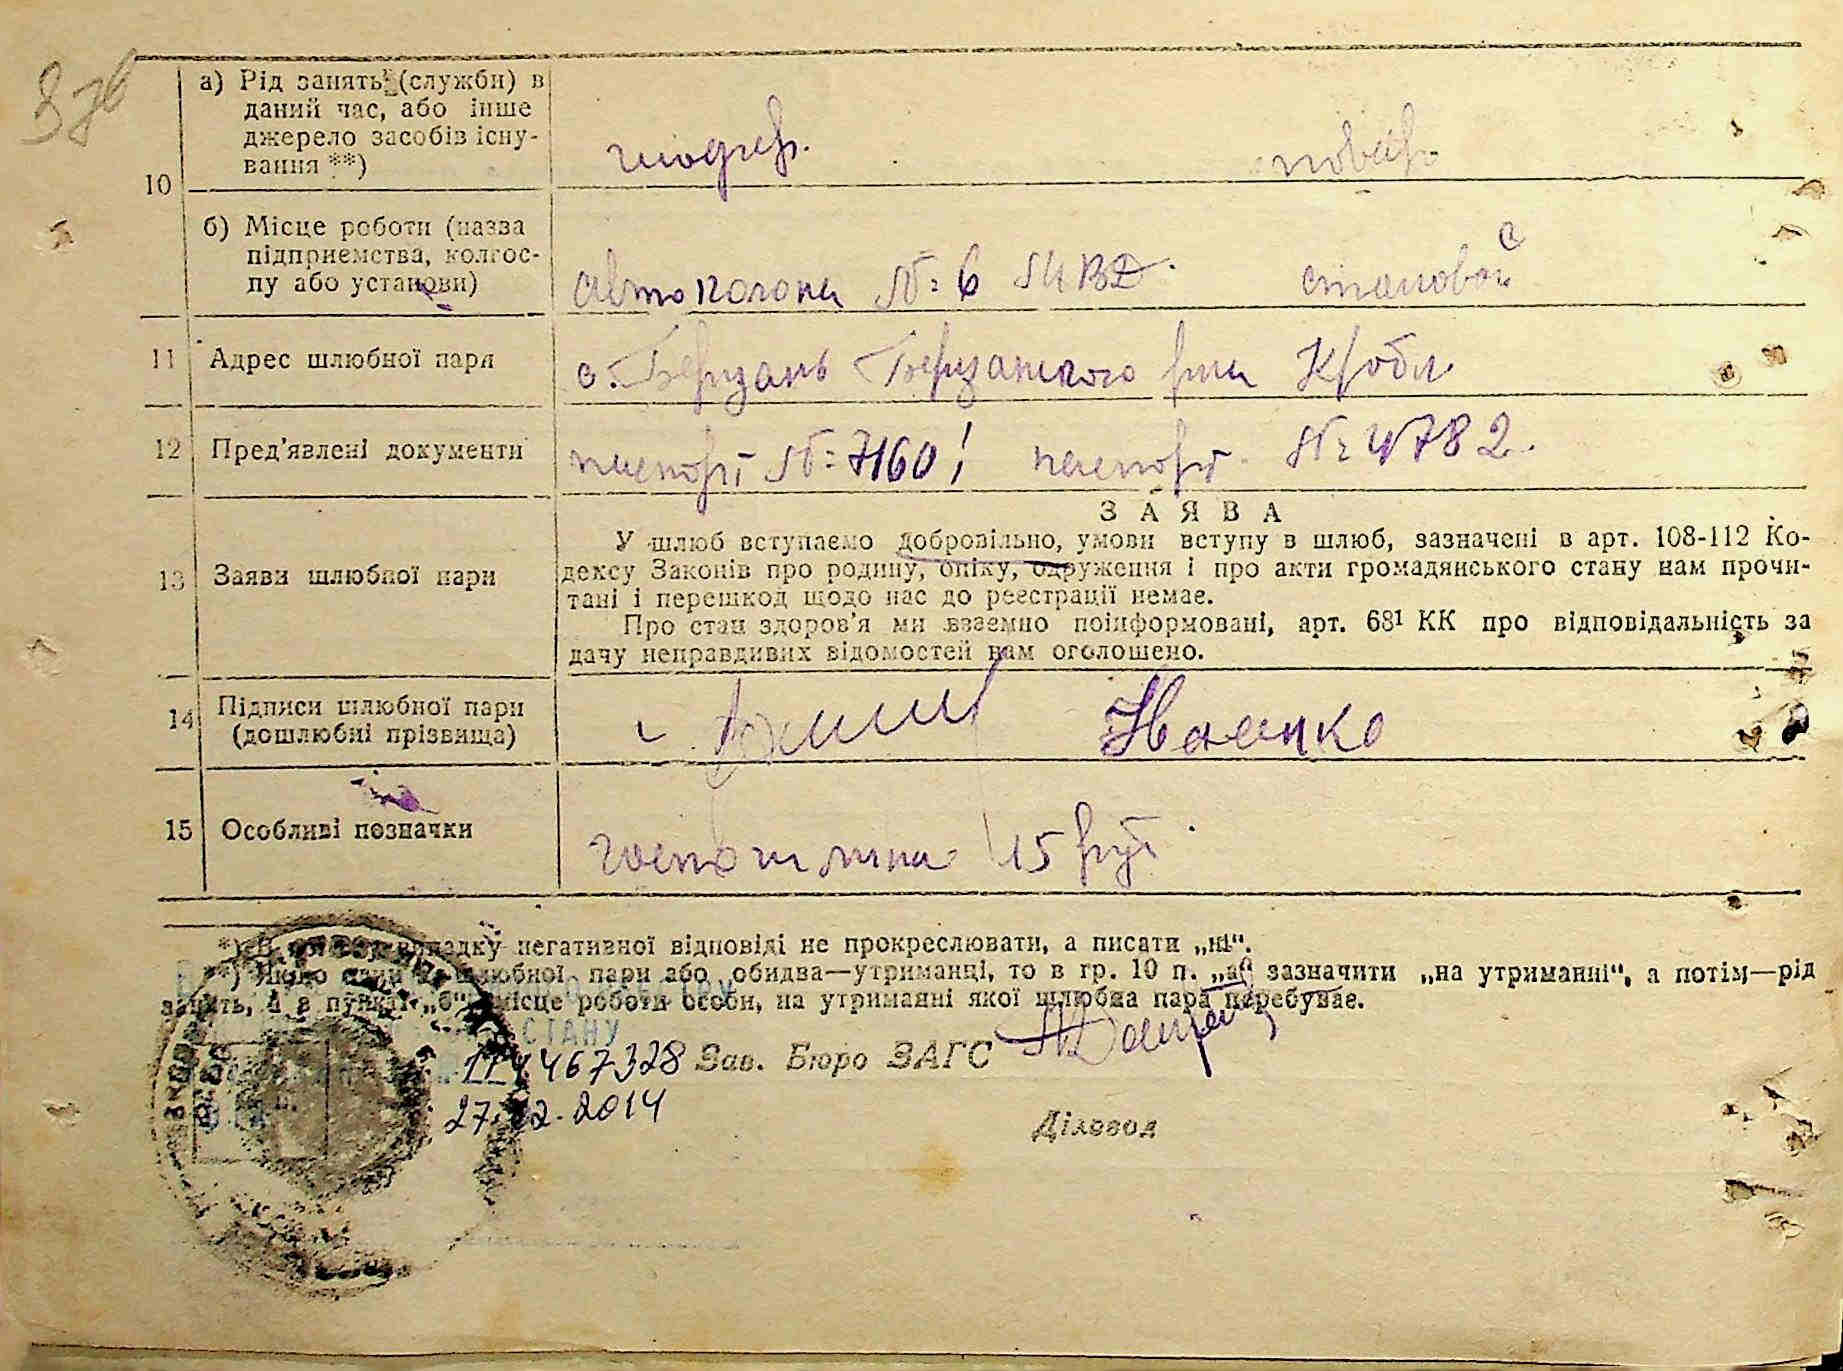 а) Рід занять (служби) в
даний час, або інше
джерело засобів існу-
вання **)
шофер. повар
10
б) Місце роботи (назва
підприємства, колгос-
пу або установи)
автоколона № 6 столовой
11 Адрес шлюбної пари
с. Березань Березанского р-на
12 Пред'явлені документи
паспорт № 7160 паспорт № 4782.
ЗАЯВА
У шлюб вступаємо добровільно, умови вступу в шлюб, зазначені в арт. 108-112 Ко-
13 Заяви шлюбної пари
дексу Законів про родину, опіку, одруження і про акти громадянського стану нам прочи-
тані і перешкод щодо нас до реєстрації немає.
Про стан здоров'я ми взаємно поінформовані, арт. 68¹ КК про відповідальність за
дачу неправдивих відомостей нам оголошено.
14 Підписи шлюбної пари
(дошлюбні прізвища)
15 Особливі позначки
госпошлина 15 руб.
*) В випадку негативної відповіді не прокреслювати, а писати „ні“.
**) Якщо один з шлюбної пари або обидва—утриманці, то в гр. 10 п. „а“ зазначити „на утриманні“, а потім—рід
занять, а в пункті „б“ місце роботи особи, на утриманні якої шлюбна пара перебуває.
СТАНУ
467328 Зав. Бюро ЗАГС
27.12.2014
Діловод